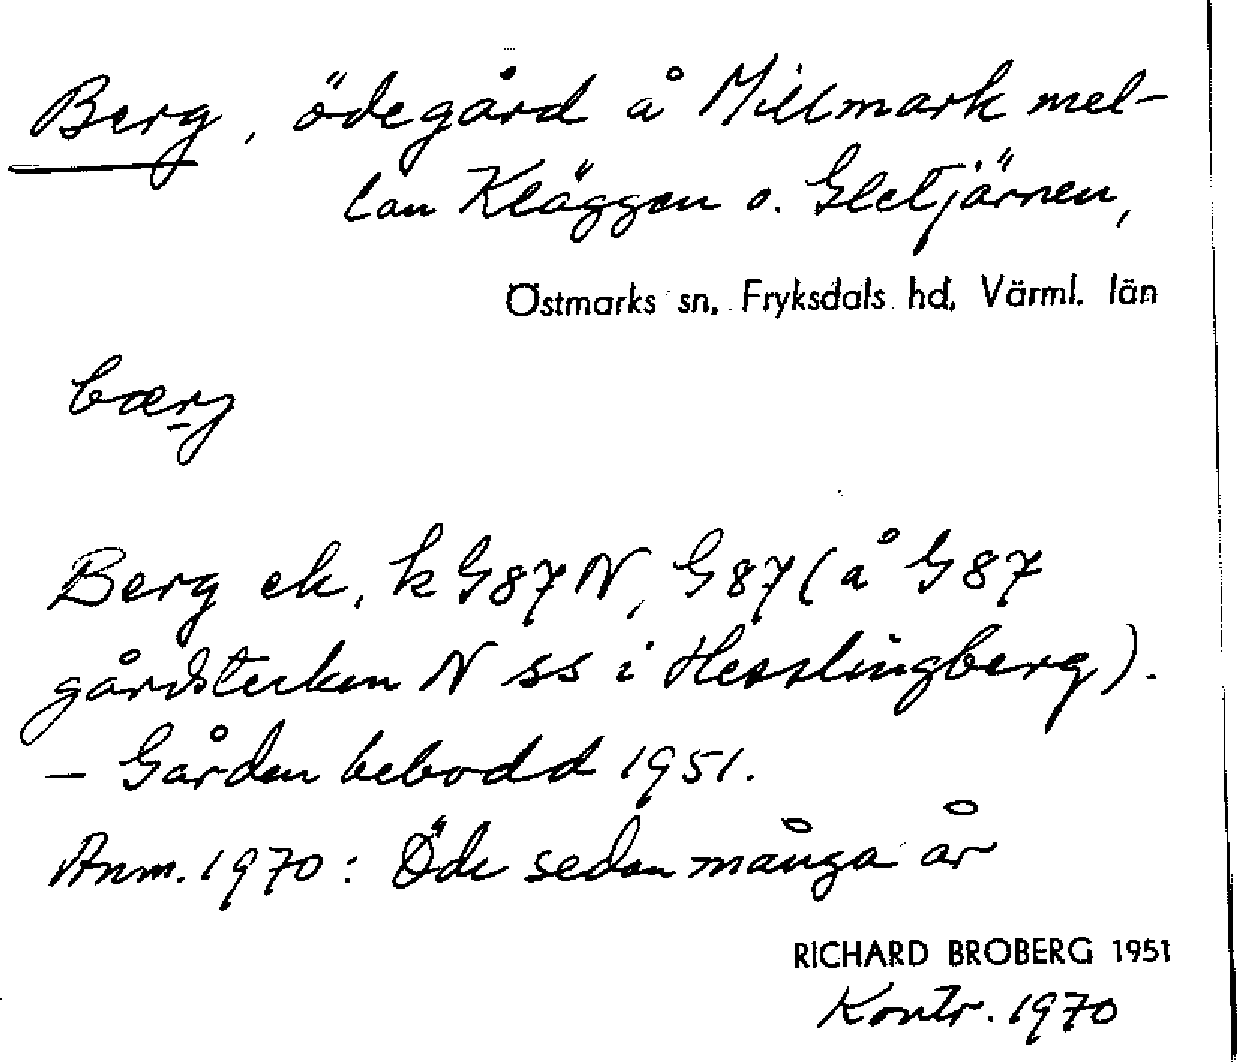 Berg, ödegård å Millmark mel-
lan Kläggen o. Gletjärnen,
Östmarks sn, Fryksdals hd, Värml. län
bærj
Berg ek, k G87 N, G87 (å G87
gårdstecken N ss i Hesslingberg).
– Gården bebodd 1951.
Anm. 1970: Öde sedan många år
RICHARD BROBERG 1951
Kontr. 1970